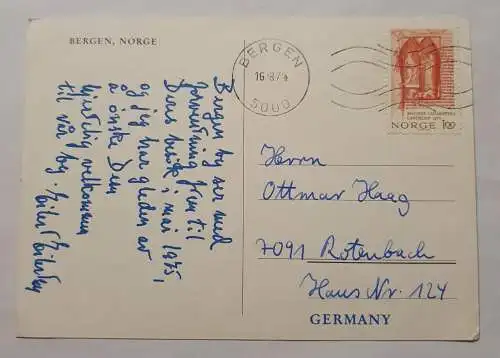 BERGEN, NORGE
Bergen by ser med
forventning frem til
Deres besök, mai 1975,
og jeg har gleden av
å önske Dem
hjertelig velkommen
til vår by.
BERGEN
16 8 74
5000
NORGE 100
Herrn
Ottmar Haag
7091 Rotenbach
Haus Nr. 124
GERMANY